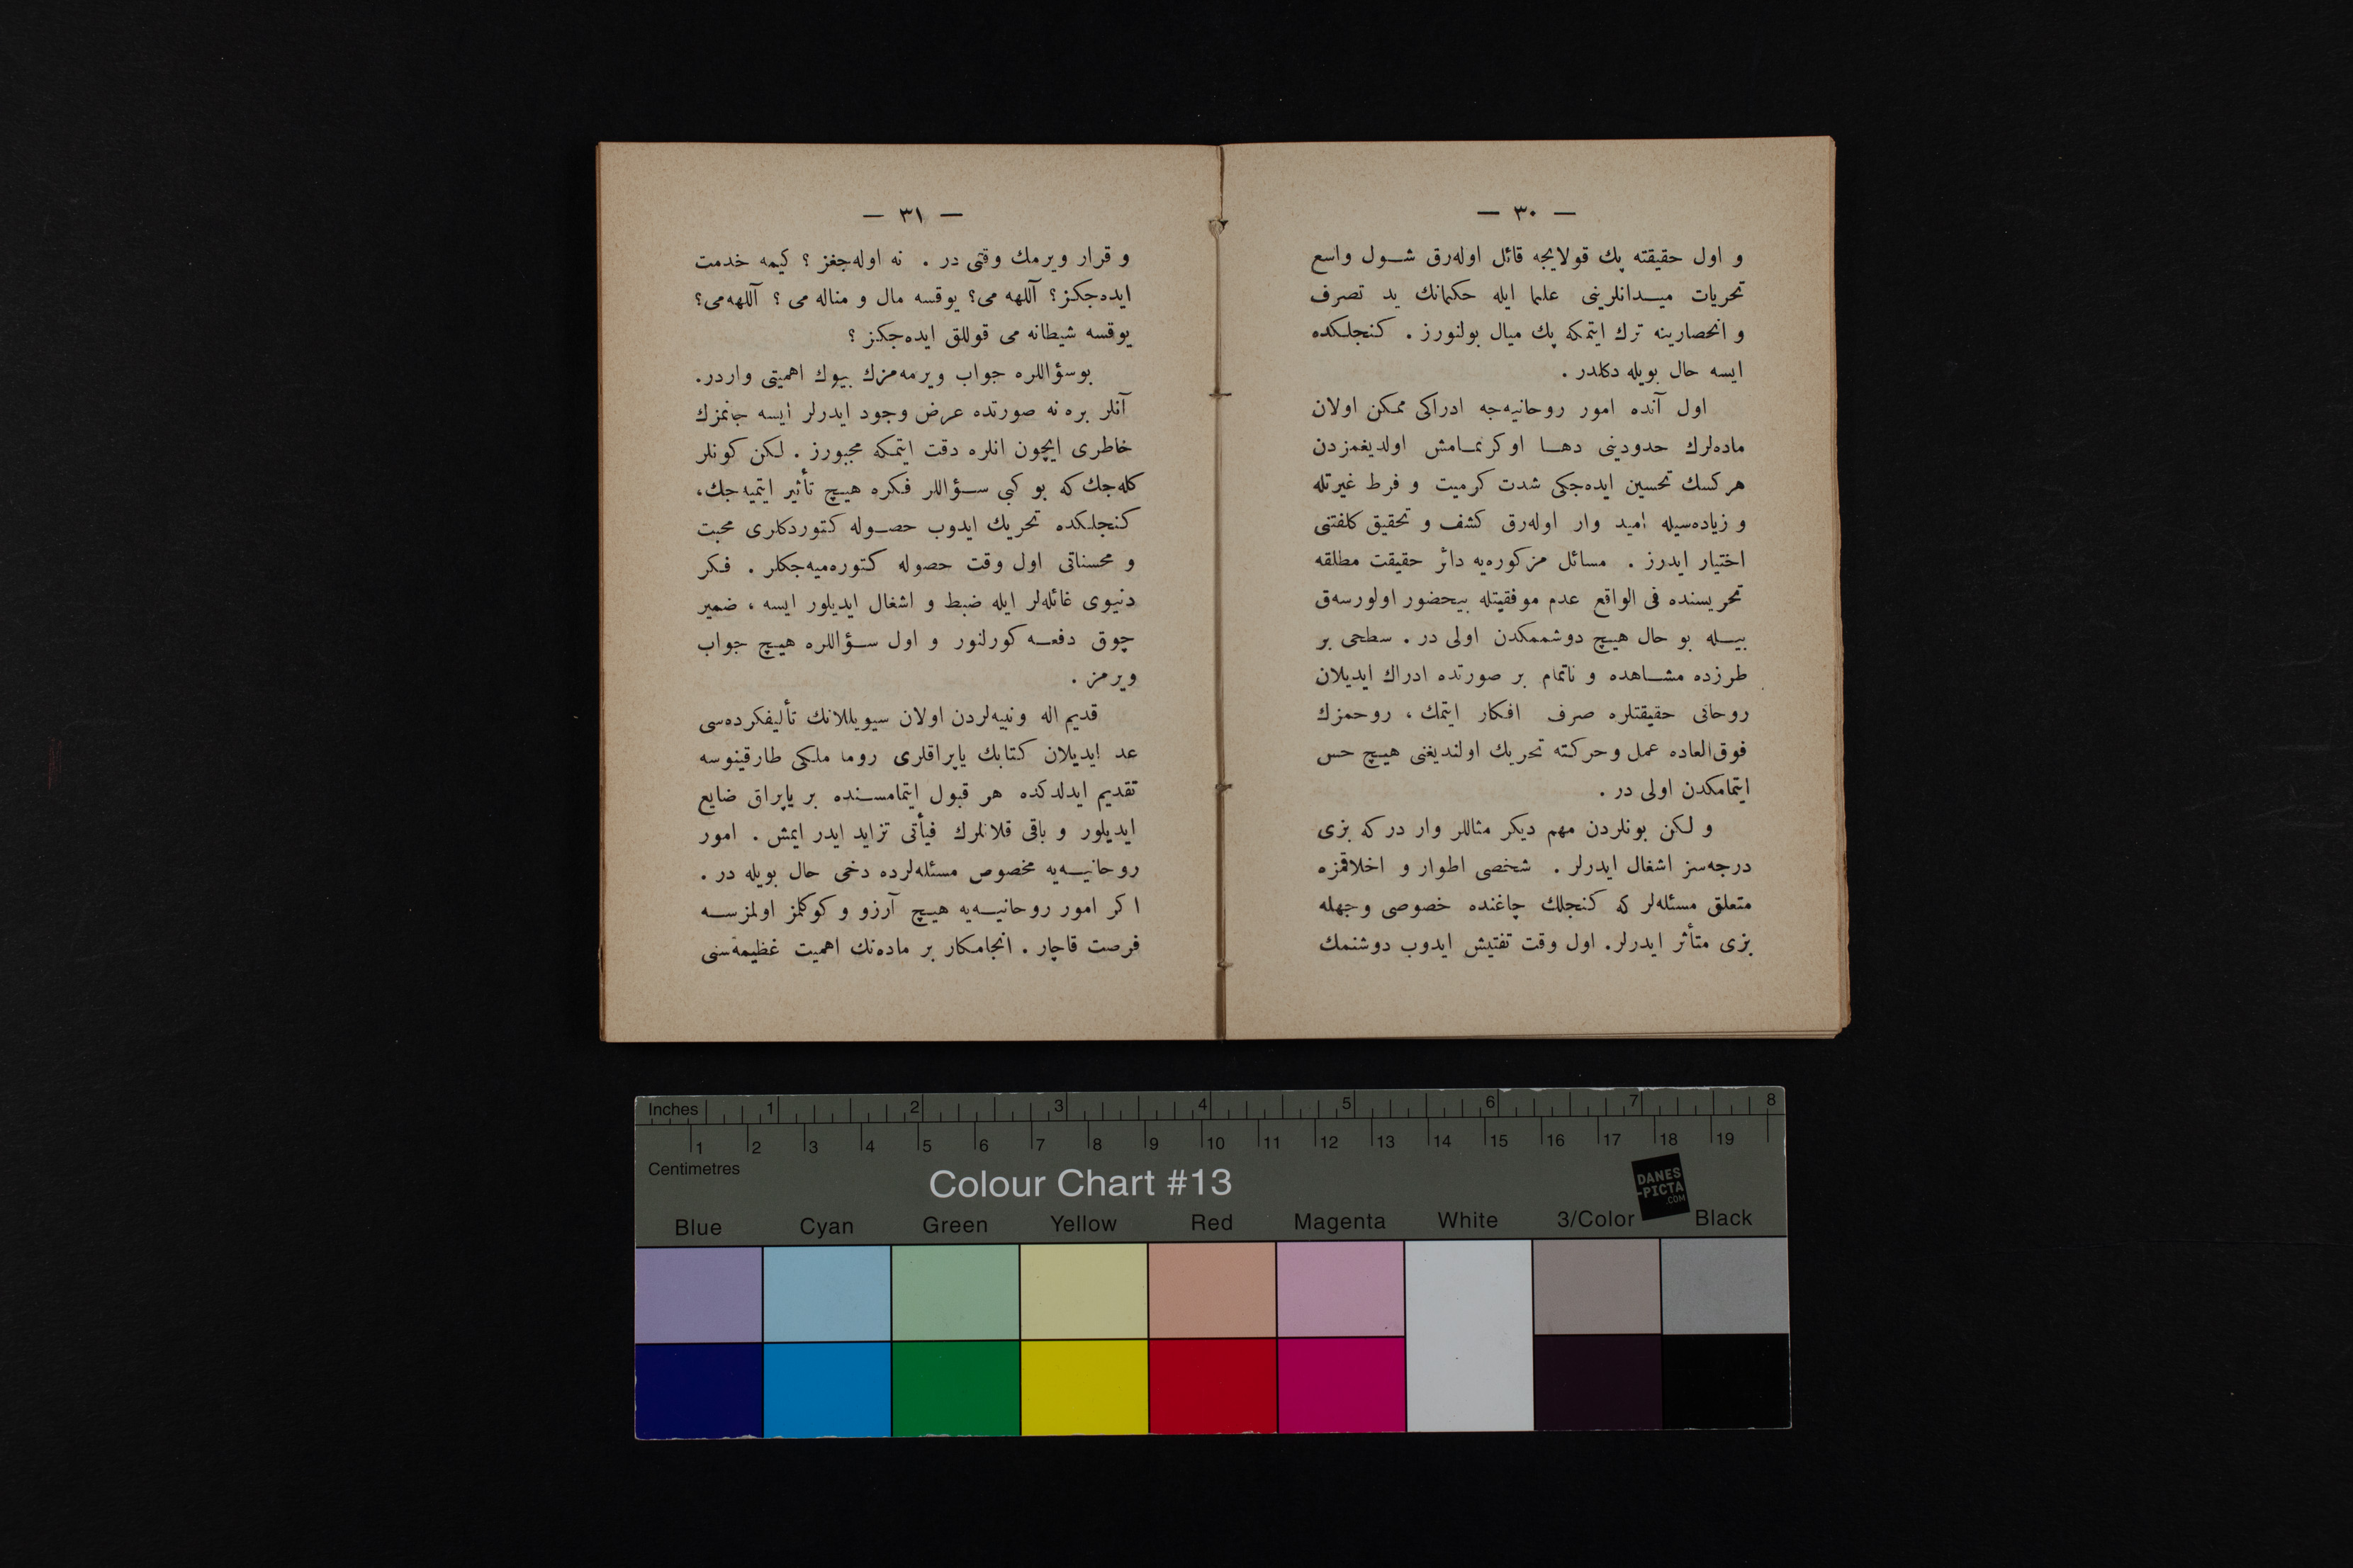 — ٣٠ —
و اول حقیقته پك قولایجه قائل اوله‌رق شـول واسع
تحریات میـدانلرینی علما ایله حکمانك ید تصرف
و انحصارینه ترك ایتمکه پك میال بولنورز . کنجلکده
ایسه حال بویله دکلدر .
اول آنده امور روحانیه‌جه ادراکی ممکن اولان
ماده‌لرك حدودینی دهـا اوکرنمـامش اولدیغمزدن
هرکسك تحسین ایده‌جکی شدت کرمیت و فرط غیرتله
و زیاده‌سیله امید وار اوله‌رق کشف و تحقیق کلفتنی
اختیار ایدرز . مسائل مزکوره‌یه دائر حقیقت مطلقه
تحریسنده فی الواقع عدم موفقیتله بیحضور اولورسه‌ق
بیـله بو حال هیچ دوشممکدن اولی در . سطحی بر
طرزده مشـاهده و ناتمام بر صورتده ادراك ایدیلان
روحانی حقیقتلره صرف افکار ایتمك ، روحمزك
فوق‌العاده عمل وحرکته تحریك اولندیغنی هیچ حس
ایتمامکدن اولی در .
و لکن بونلردن مهم دیکر مثاللر وار درکه بزی
درجه‌سز اشغال ایدرلر . شخصی اطوار و اخلاقمزه
متعلق مسئله‌لر که کنجلك چاغنده خصوصی وجهله
بزی متأثر ایدرلر. اول وقت تفتیش ایدوب دوشنمك
— ٣١ —
و قرار ویرمك وقتی در . نه اوله‌جغز ؟ کیمه خدمت
ایده‌جکز؟ آللهه می؟ یوقسه مال و مناله می ؟ آللهه‌می؟
یوقسه شیطانه می قوللق ایده‌جکز ؟
بوسؤاللره جواب ویرمه‌مزك بیوك اهمیتی واردر.
آنلر بره نه صورتده عرض وجود ایدرلر ایسه جانمزك
خاطری ایچون انلره دقت ایتمکه مجبورز . لکن کونلر
کله‌جك که بو کبی سـؤاللر فکره هیچ تأثیر ایتمیه‌جك،
کنجلکده تحریك ایدوب حصـوله کتوردکلری محبت
و محسناتی اول وقت حصوله کتوره‌میه‌جکلر . فکر
دنیوی غائله‌لر ایله ضبط و اشغال ایدیلور ایسه ، ضمیر
چوق دفعـه کورلنور و اول سـؤاللره هیچ جواب
ویرمز .
قدیم اله ونبیه‌لردن اولان سیویللانك تألیفکرده‌سی
عد ایدیلان کتابك یاپراقلری روما ملکی طارقینوسه
تقدیم ایدلدکده هر قبول ایتمامسـنده بر یاپراق ضایع
ایدیلور و باقی قلانلرك فیأتی تزاید ایدر ایمش . امور
روحانیـه‌یه مخصوص مسئله‌لرده دخی حال بویله در .
اکر امور روحانیـه‌یه هیچ آرزو و کوکلمز اولمزسـه
فرصت قاچار . انجامکار بر ماده‌نك اهمیت عظیمه‌سنی
Inches 1 2 3 4 5 6 7 8
1 2 3 4 5 6 7 8 9 10 11 12 13 14 15 16 17 18 19
Centimetres
Colour Chart #13
DANES
-PICTA
.COM
Blue Cyan Green Yellow Red Magenta White 3/Color Black